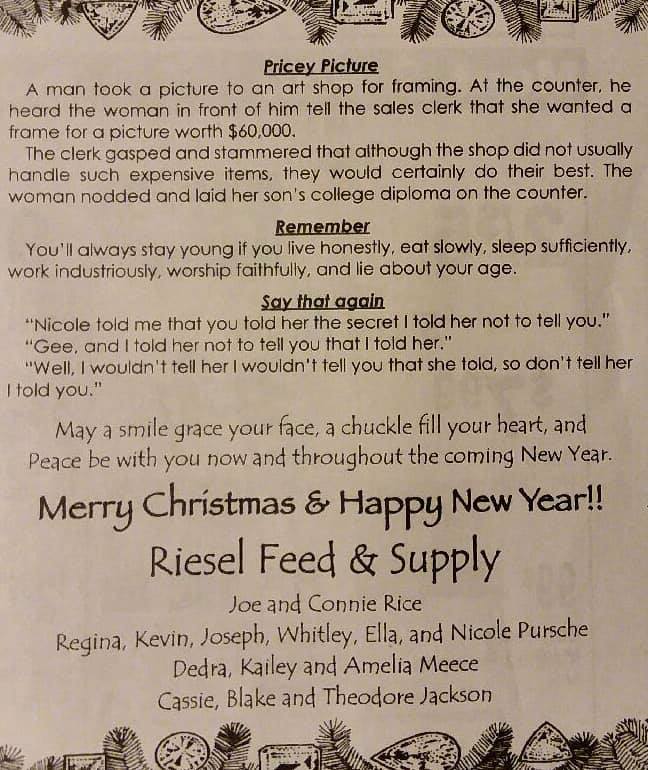 Pricey Picture
A man took a picture to an art shop for framing. At the counter, he
heard the woman in front of him tell the sales clerk that she wanted a
frame for a picture worth $60,000.
The clerk gasped and stammered that although the shop did not usually
handle such expensive items, they would certainly do their best. The
woman nodded and laid her son's college diploma on the counter.
Remember
You'll always stay young if you live honestly, eat slowly, sleep sufficiently,
work industriously, worship faithfully, and lie about your age.
Say that again
"Nicole told me that you told her the secret I told her not to tell you."
"Gee, and I told her not to tell you that I told her."
"Well, I wouldn't tell her I wouldn't tell you that she told, so don't tell her
I told you."
May a smile grace your face, a chuckle fill your heart, and
Peace be with you now and throughout the coming New Year.
Merry Christmas & Happy New Year!!
Riesel Feed & Supply
Joe and Connie Rice
Regina, Kevin, Joseph, Whitley, Ella, and Nicole Pursche
Dedra, Kailey and Amelia Meece
Cassie, Blake and Theodore Jackson